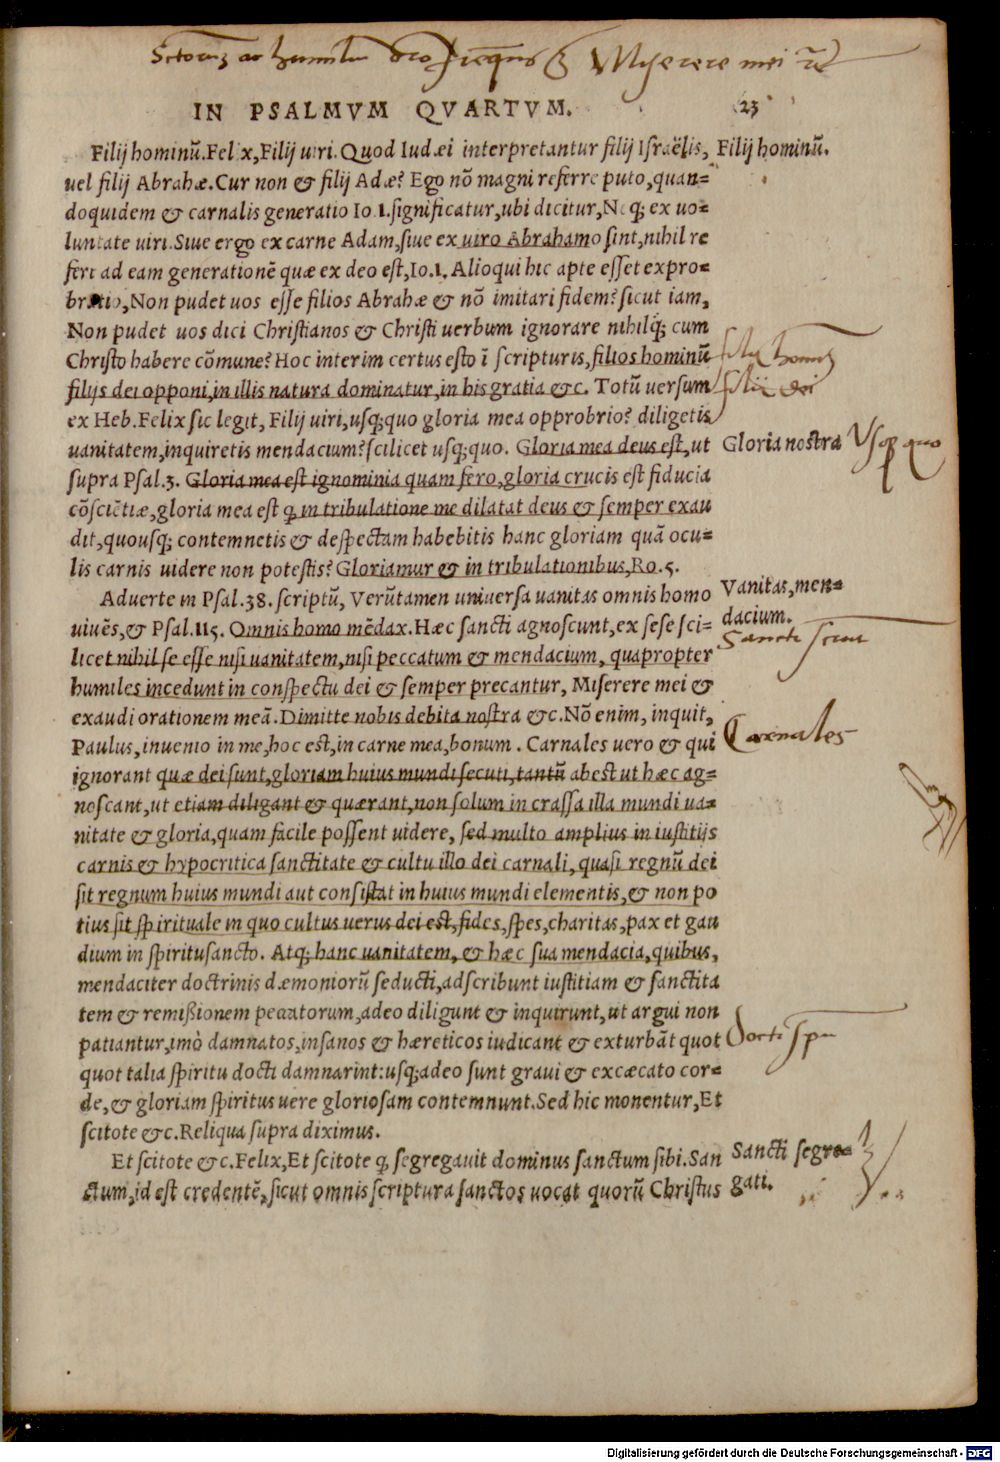 Miserere mei
IN PSALMVM QVARTVM. 23
Filij hominũ. Felix, Filij uiri. Quod Iudæi interpretantur filij Israëlis, Filij hominũ.
uel filij Abrahæ. Cur non & filij Adæ? Ego nõ magni referre puto, quan=
doquidem & carnalis generatio Io.1. significatur, ubi dicitur, Neq; ex uo=
luntate uiri. Siue ergo ex carne Adam, siue ex uiro Abrahamo sint, nihil re
fert ad eam generationẽ quæ ex deo est, Io.1. Alioqui hic apte esset expro=
bratio, Non pudet uos esse filios Abrahæ & nõ imitari fidem? sicut iam,
Non pudet uos dici Christianos & Christi uerbum ignorare nihilq́; cum
Christo habere cõmune? Hoc interim certus esto ĩ scripturis, filios hominũ
filijs dei opponi, in illis natura dominatur, in his gratia &c. Totũ uersum
filij dei
ex Heb. Felix sic legit, Filij uiri, usq;quo gloria mea opprobrio? diligetis
uanitatem, inquiretis mendacium? scilicet usq;quo. Gloria mea deus est, ut Gloria nostra Usqꝫ quo
supra Psal.3. Gloria mea est ignominia quam fero, gloria crucis est fiducia
cõsciẽtiæ, gloria mea est ꝗ in tribulatione me dilatat deus & semper exau
dit, quousq; contemnetis & despectam habebitis hanc gloriam quã ocu=
lis carnis uidere non potestis? Gloriamur & in tribulationibus, Ro.5.
Aduerte in Psal.38. scriptũ, Verũtamen uniuersa uanitas omnis homo Vanitas, men=
uiuẽs, & Psal.115. Omnis homo mẽdax. Hæc sancti agnoscunt, ex sese sci= dacium.
Sancti
licet nihil se esse nisi uanitatem, nisi peccatum & mendacium, quapropter
humiles incedunt in conspectu dei & semper precantur, Miserere mei &
exaudi orationem meã. Dimitte nobis debita nostra &c. Nõ enim, inquit,
Paulus, inuenio in me, hoc est, in carne mea, bonum. Carnales uero & qui Carnales
ignorant quæ dei sunt, gloriam huius mundi secuti, tantũ abest ut hæc ag=
noscant, ut etiam diligant & quærant, non solum in crassa illa mundi ua=
nitate & gloria, quam facile possent uidere, sed multo amplius in iustitijs
carnis & hypocritica sanctitate & cultu illo dei carnali, quasi regnũ dei
sit regnum huius mundi aut consistat in huius mundi elementis, & non po
tius sit spirituale in quo cultus uerus dei est, fides, spes, charitas, pax et gau
dium in spiritusancto. Atq; hanc uanitatem, & hæc sua mendacia, quibus,
mendaciter doctrinis dæmoniorũ seducti, adscribunt iustitiam & sanctita
tem & remißionem peccatorum, adeo diligunt & inquirunt, ut argui non
patiantur, imò damnatos, insanos & hæreticos iudicant & exturbãt quot
quot talia spiritu docti damnarint: usq;adeo sunt graui & excæcato cor=
de, & gloriam spiritus uere gloriosam contemnunt. Sed hic monentur, Et
scitote &c. Reliqua supra diximus.
Et scitote &c. Felix, Et scitote ꝗ segregauit dominus sanctum sibi. San Sancti segre=
ctum, id est credentẽ, sicut omnis scriptura sanctos uocat quorũ Christus gati.
Digitalisierung gefördert durch die Deutsche Forschungsgemeinschaft - DFG